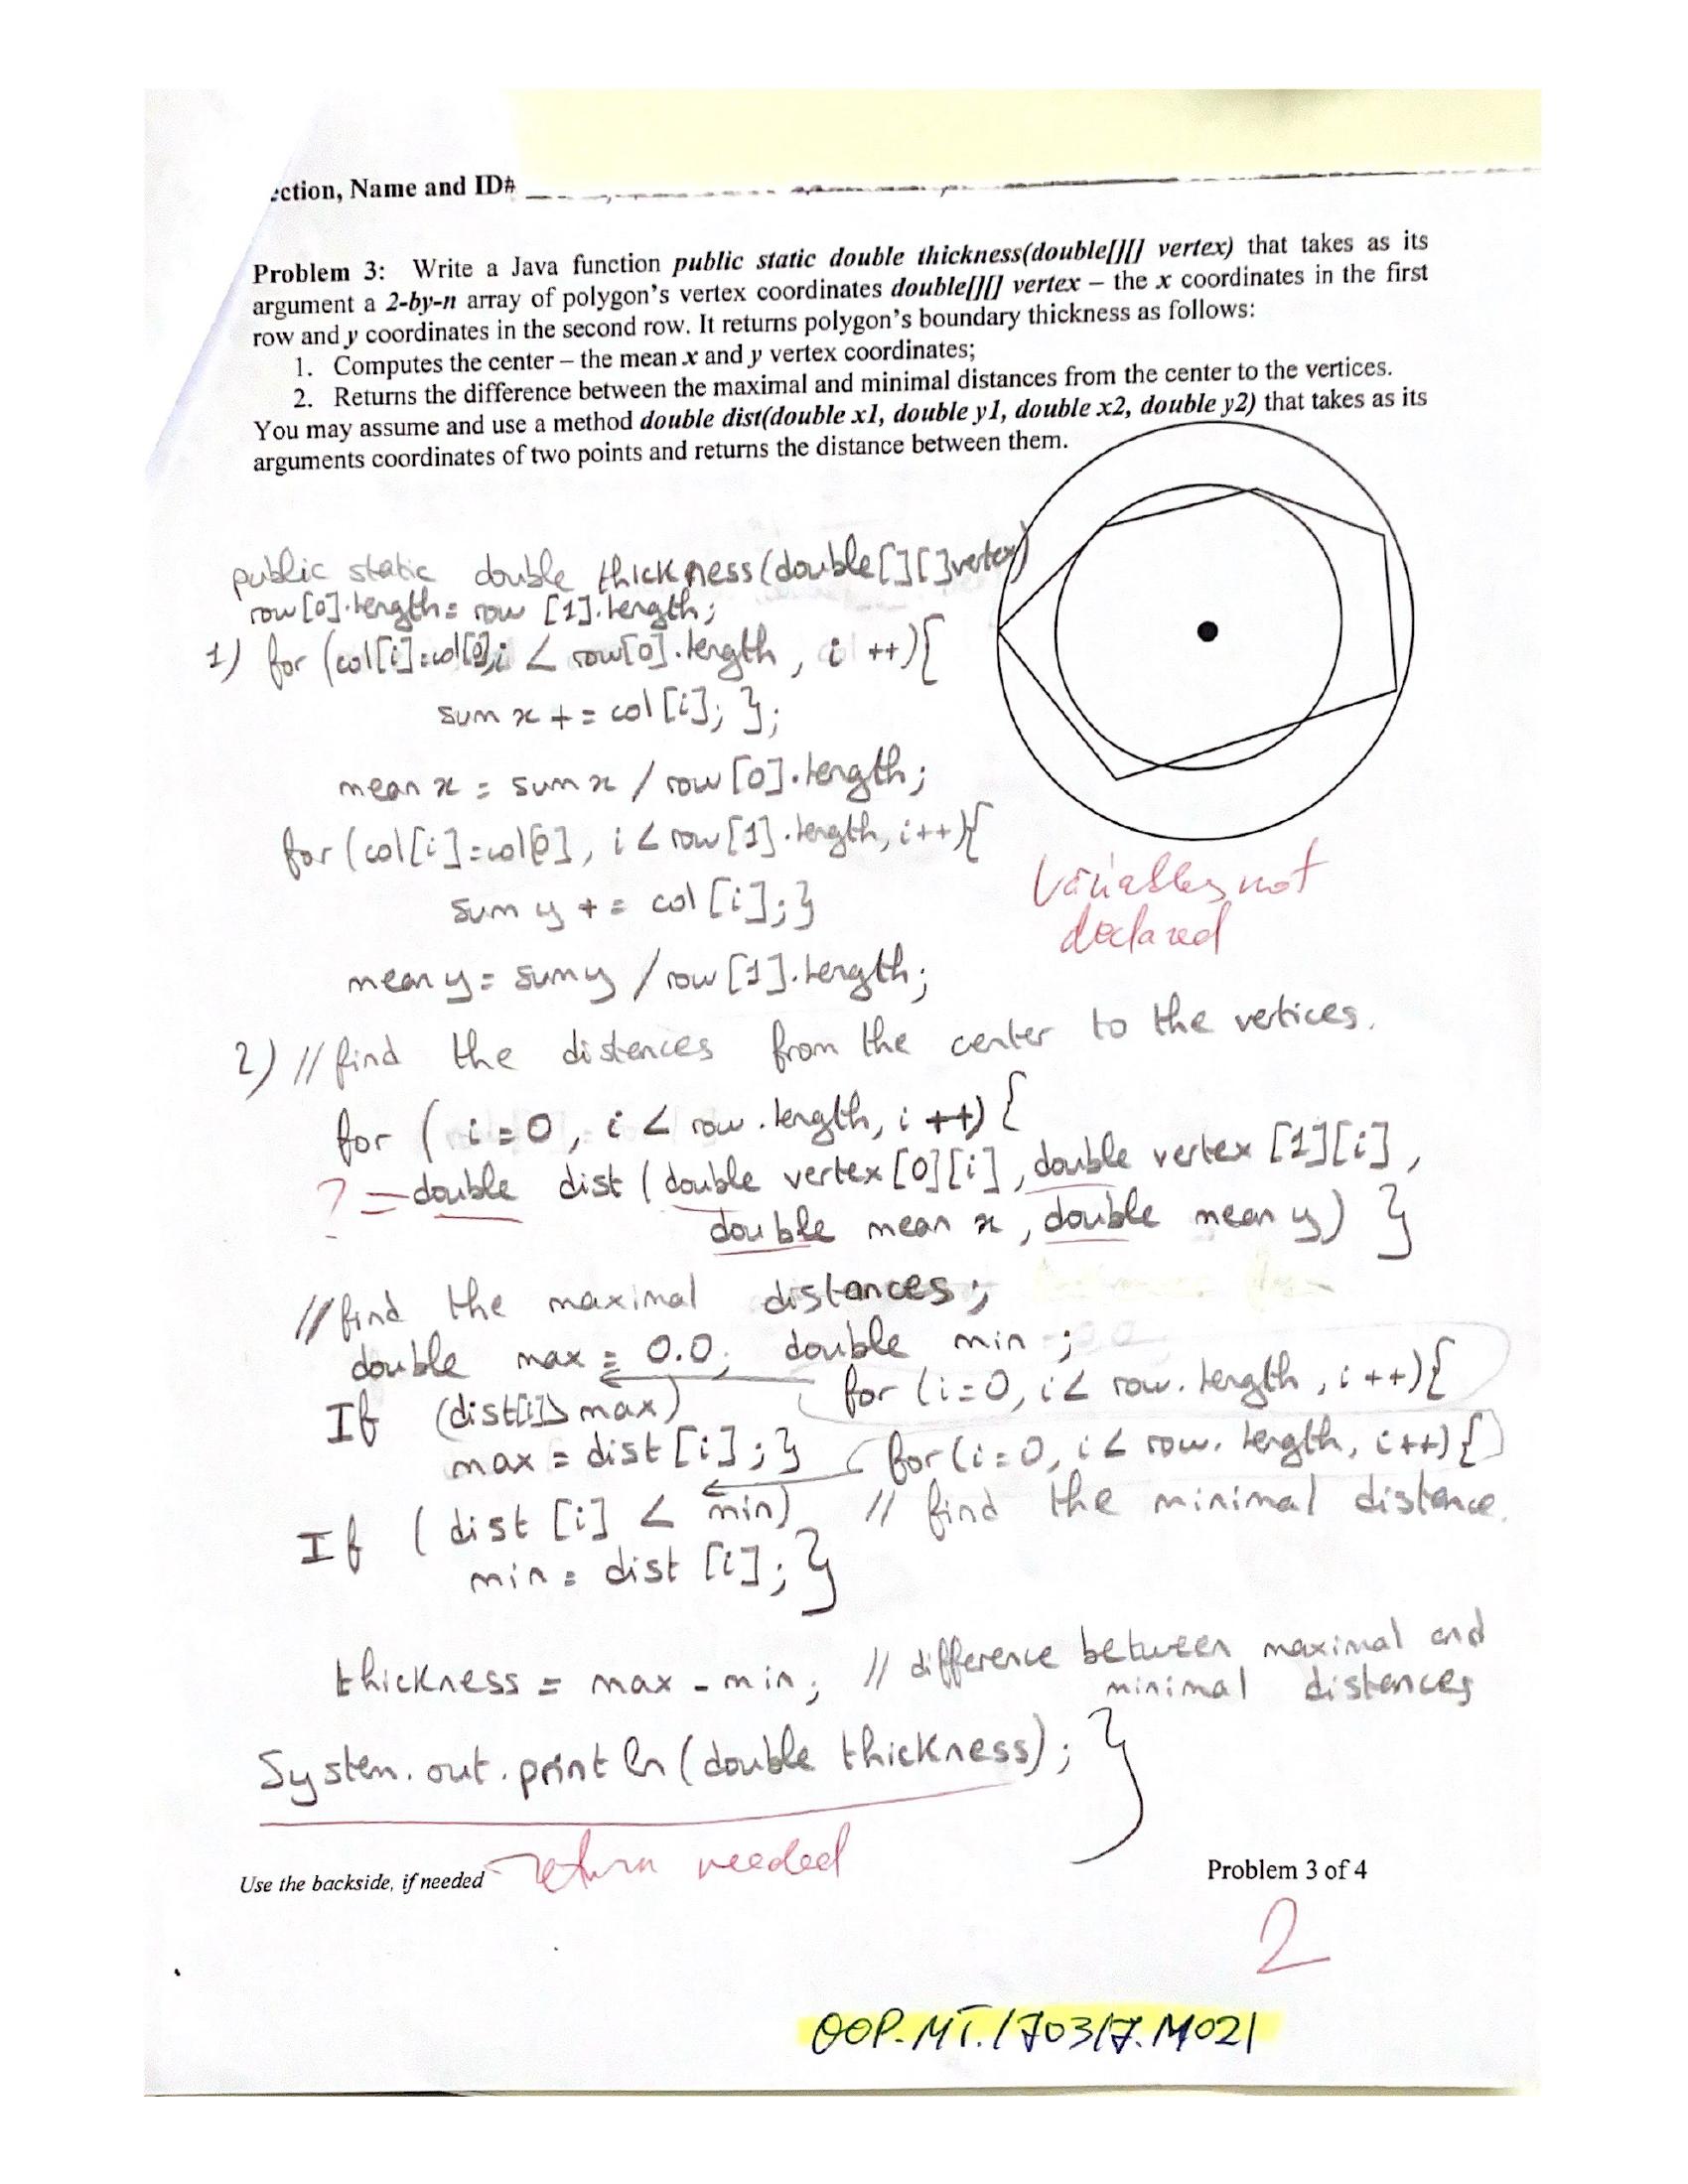 ction, Name and ID#
Problem 3: Write a Java function public static double thickness(double[][] vertex) that takes as its
argument a 2-by-n array of polygon's vertex coordinates double[][] vertex – the x coordinates in the first
row and y coordinates in the second row. It returns polygon's boundary thickness as follows:
1. Computes the center – the mean x and y vertex coordinates;
2. Returns the difference between the maximal and minimal distances from the center to the vertices.
You may assume and use a method double dist(double x1, double y1, double x2, double y2) that takes as its
arguments coordinates of two points and returns the distance between them.
public static double thickness(double[][]vertex)
row[0].length= row [1].length;
1) for (col[i]=col[0]; i < row[0].length, i ++){
sum x += col[i]; };
mean x = sum x / row[0].length;
for (col[i]=col[0], i < row[1].length, i++){
sum y += col[i];}
Variables not
declared
mean y = sum y / row[1].length;
2) // find the distences from the center to the vertices.
for ( i=0, i < row.length, i ++) {
? = double dist ( double vertex [0][i], double vertex [1][i],
double mean x, double mean y) }
// find the maximal distances;
double max = 0.0; double min ;
for (i=0, i< row.length, i++){
If (dist[i]> max)
max = dist [i]; }
for(i=0, i< row.length, i++){
If ( dist [i] < min) // find the minimal distance.
min = dist [i]; }
thickness = max - min; // difference between maximal and
minimal distances
System.out.println(double thickness); }
return needed
Use the backside, if needed
Problem 3 of 4
2
OOP.MT.170317.M021